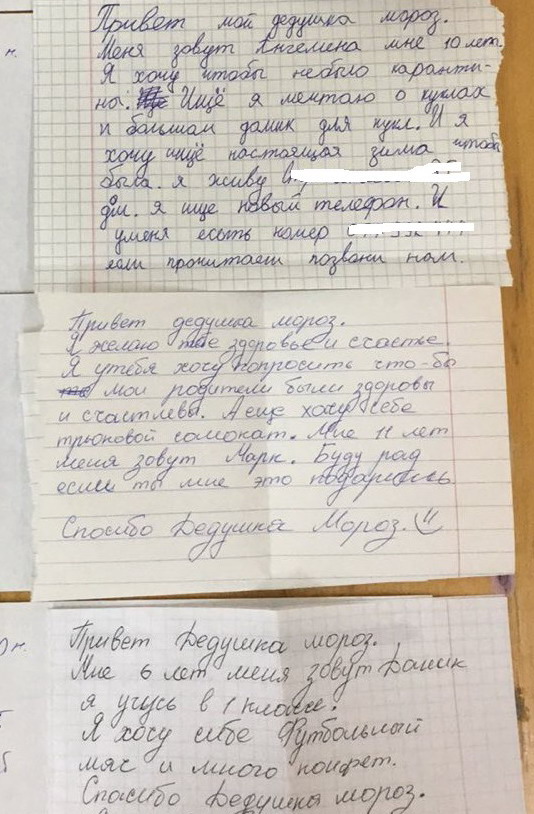 Привет мой дедушка мороз.
Меня зовут Ангелина мне 10 лет.
Я хочу чтобы небыло каранти-
на. Ищё я мечтаю о куклах
и большом домик для кукл. И я
хочу ищё настоящая зима чтобы
была. я живу
дм. я ище новый телефон. И
уменя есть номер
если прочитаеш позвони нам.
Привет дедушка мороз.
Я желаю тебе здоровье и счастье.
Я утебя хочу попросить что-бы
мои родители были здоровы
и счастлевы. А еще хочу себе
трюковой самокат. Мне 11 лет
меня зовут Марк. Буду рад
если ты мне это подаришь
Спосибо Дедушка Мороз.
Привет Дедушка мороз.
Мне 6 лет меня зовут Даник
я учусь в 1 классе.
Я хочу себе Футбольный
мяч и много конфет.
Спасибо Дедушка мороз.